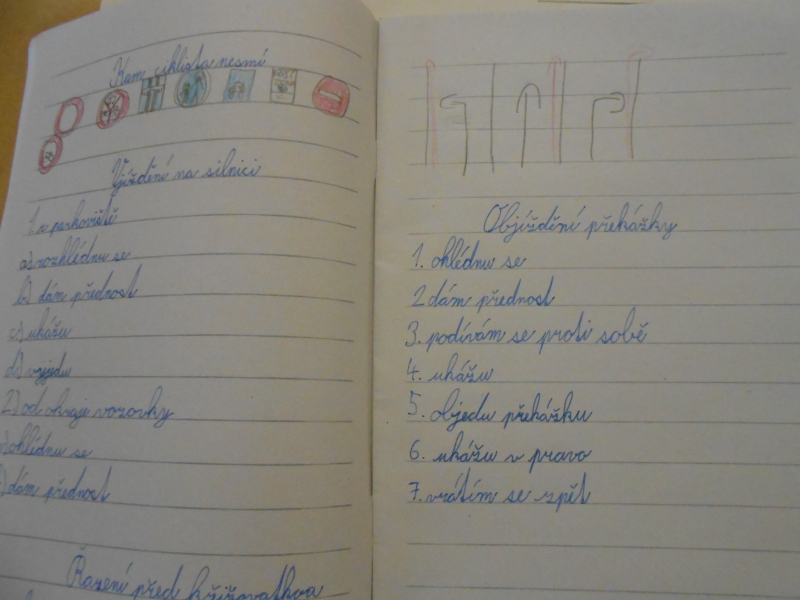 Kam ciklista nesmí
Vjíždění na silnici
1. z parkoviště
a) rozhlédnu se
b) dám přednost
c) ukážu
d) vyjedu
2) od okraje vozovky
ohlédnu se
dám přednost
Řazení před křižovatkou
Objíždění překážky
1. ohlédnu se
2 dám přednost
3. podívám se proti sobě
4. ukážu
5. objedu překážku
6. ukážu v pravo
7. vrátím se zpět